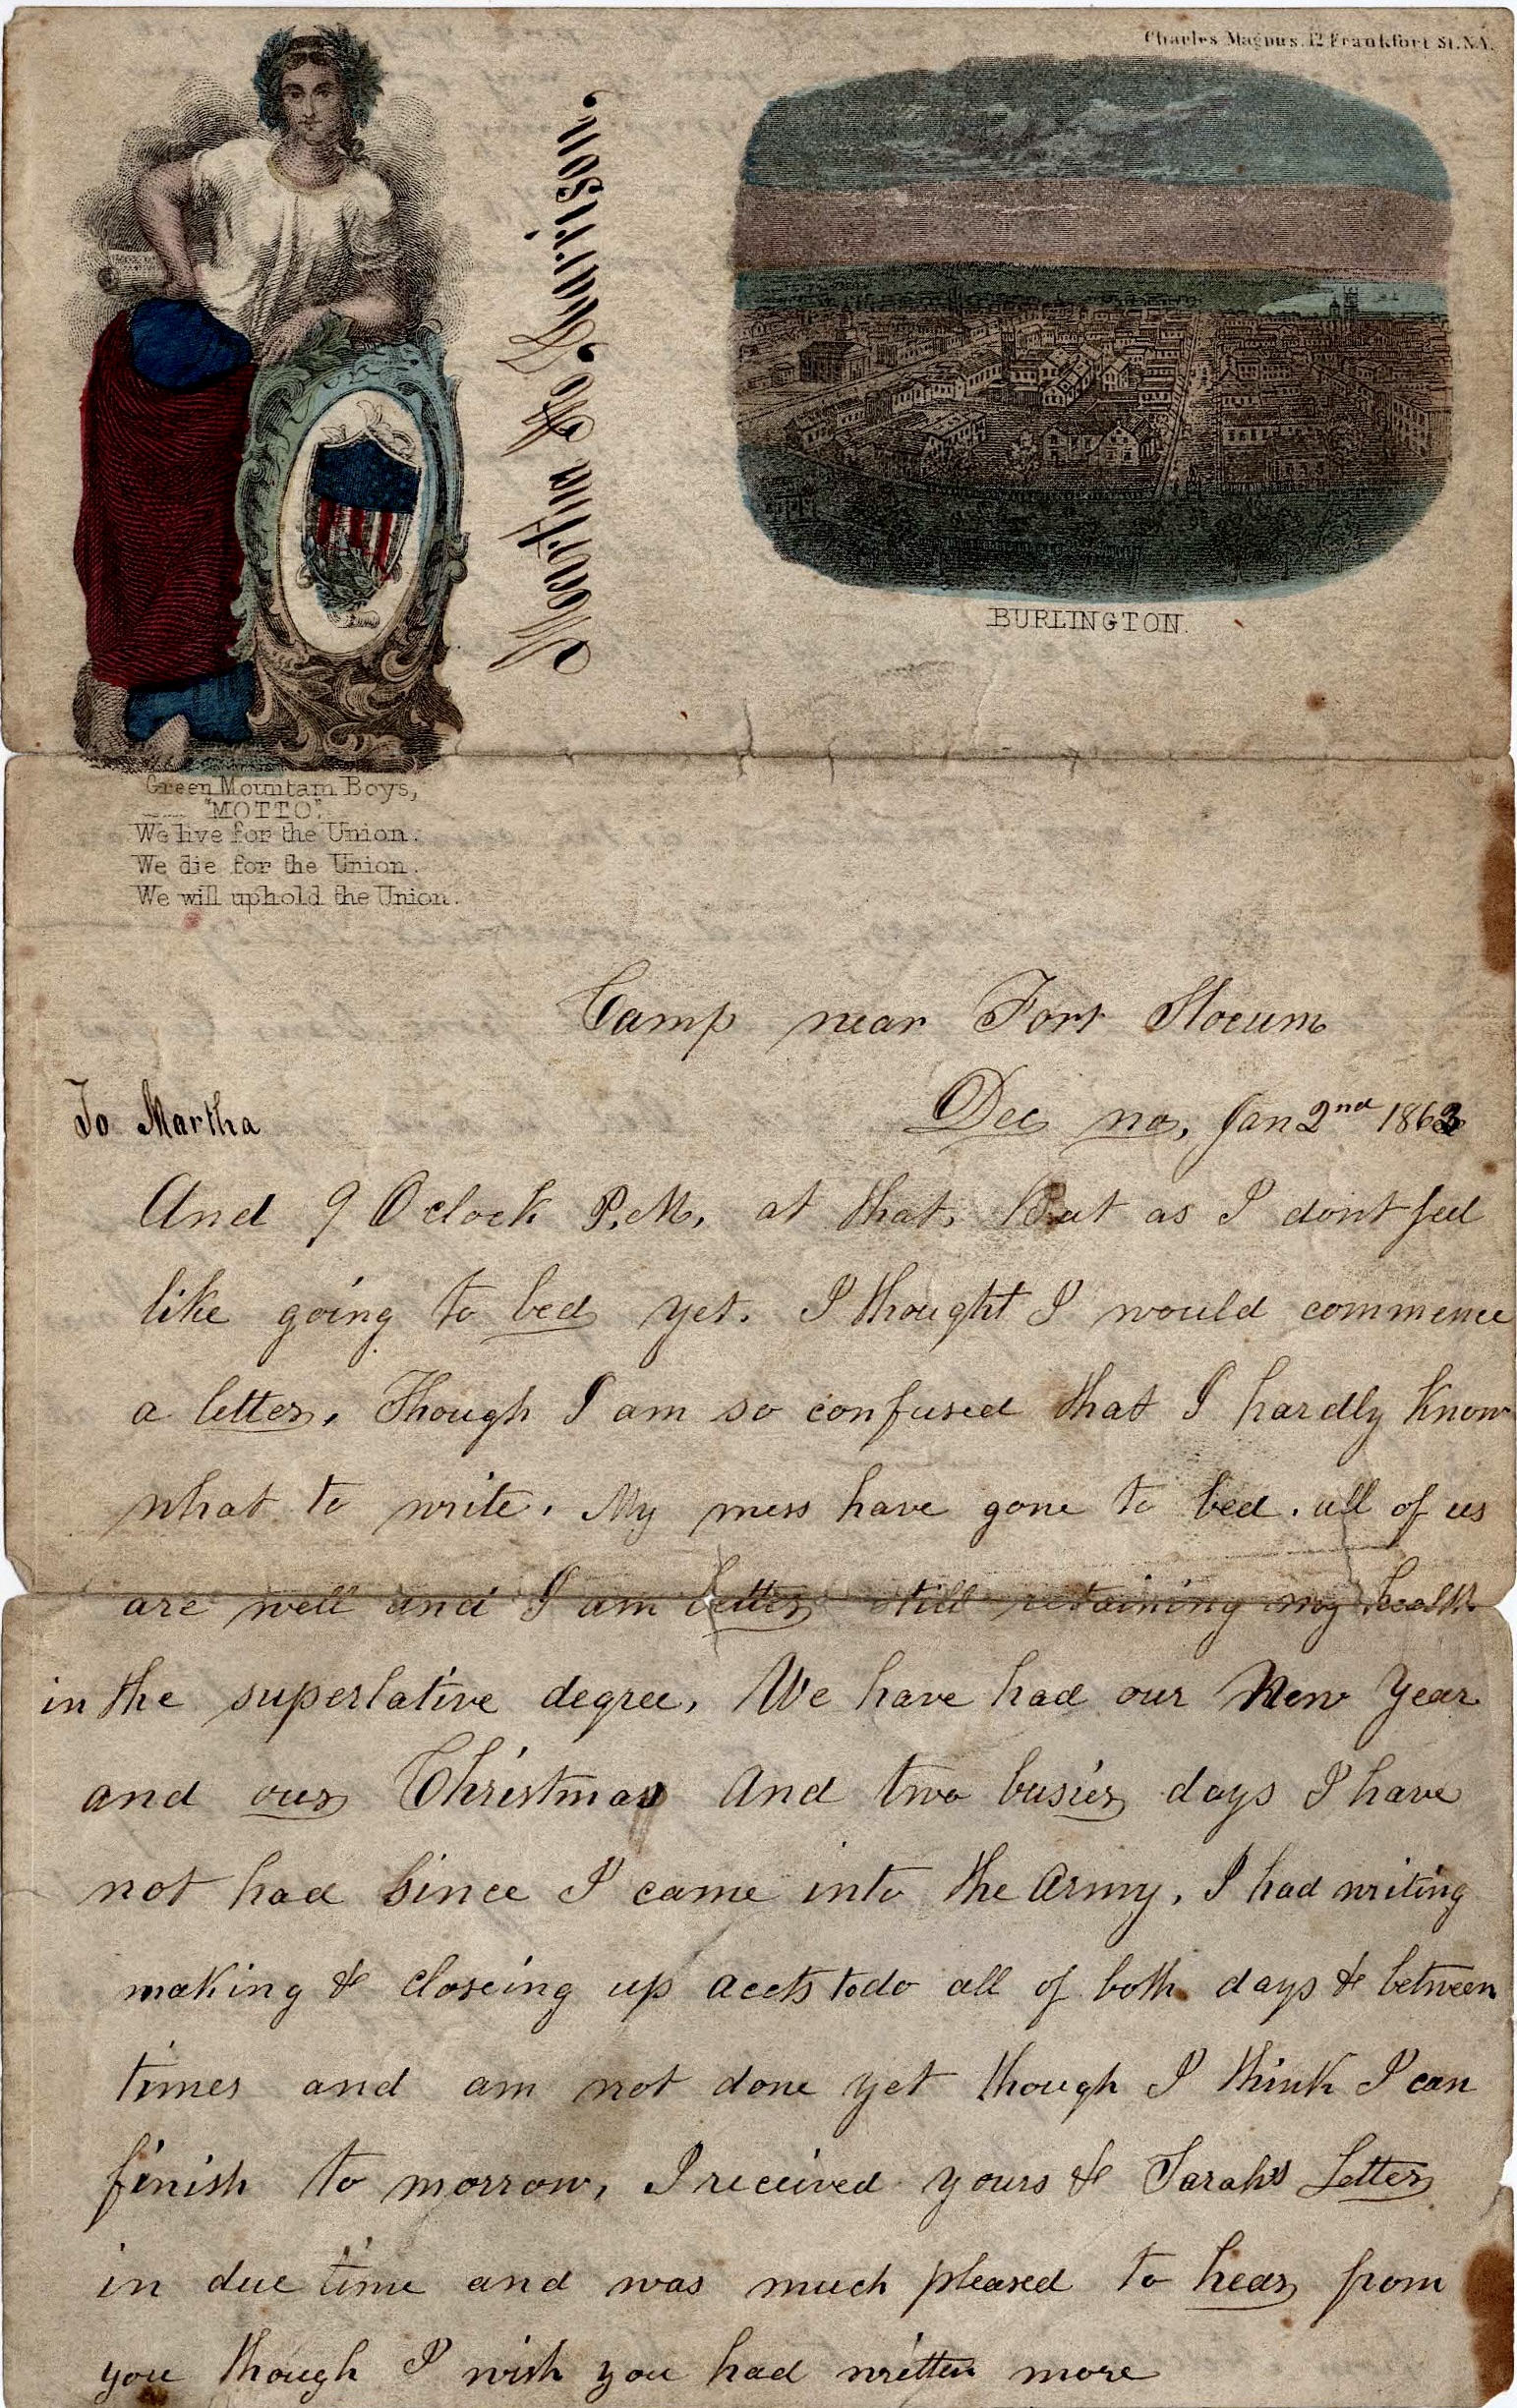 Charles Magnus. 12 Frankfort St. N.Y.
Martha A. Harrison.
BURLINGTON.
Green Mountain Boys,
"MOTTO".
We live for the Union.
We die for the Union.
We will uphold the Union.
Camp near Fort Slocum
Dec no, Jan 2nd 1863
To Martha
And 9 Oclock P.M, at that, But as I dont feel
like going to bed yet. I thought I would commence
a letter, Though I am so confused that I hardly know
what to write. My mess have gone to bed. all of us
are well and I am better still retaining my health
in the superlative degree, We have had our New Year
and our Christmas And two busier days I have
not had since I came into the Army, I had writing
making & closeing up accts to do all of both days & between
times and am not done yet though I think I can
finish to morrow, I received yours & Sarah's Letter
in due time and was much pleased to hear from
you though I wish you had written more